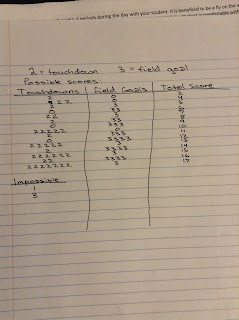 periods during the day with your student. It is beneficial to be a fly on the
comfortable with
2 = touchdown 3 = field goal
Possible scores:
Touchdowns Field Goals Total Score
2 0 2
22 0 4
2 3 5
0 33 6
22 3 7
2 33 8
0 333 9
22222 0 10
2 333 11
0 3333 12
22222 3 13
2 3333 14
222222 3 15
22 3333 16
2222222 3 17
Impossible
1
3